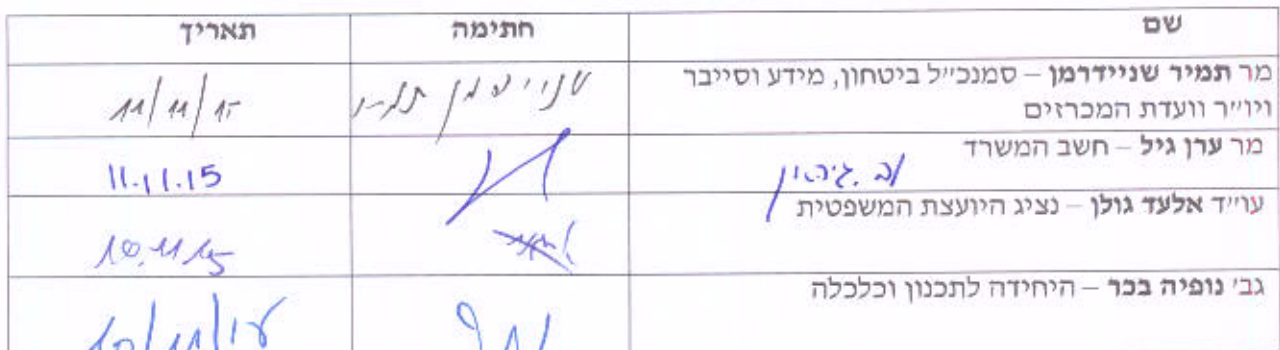 שם חתימה תאריך
מר תמיר שניידרמן – סמנכ״ל ביטחון, מידע וסייבר
ויו״ר וועדת המכרזים 11/11/15
מר ערן גיל – חשב המשרד 11.11.15
עו״ד אלעד גולן – נציג היועצת המשפטית 10.11.15
גב׳ נופיה בכר – היחידה לתכנון וכלכלה